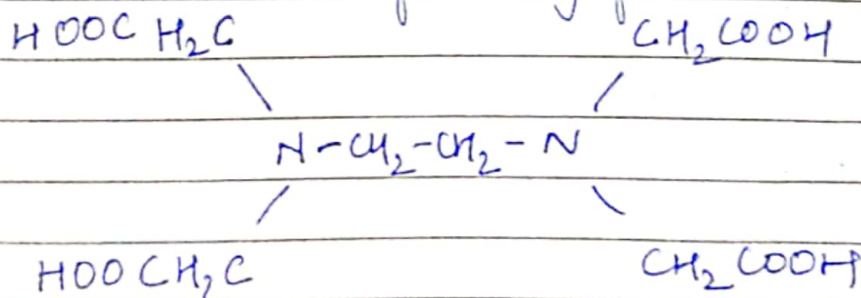 HOOC H₂C CH₂COOH
N-CH₂-CH₂-N
HOOCH₂C CH₂COOH